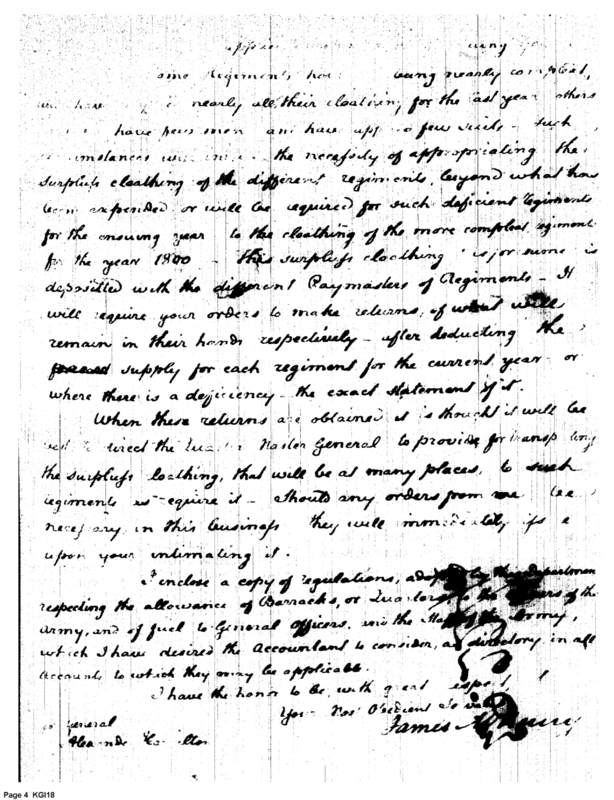 Regiments being nearly compleat,
have nearly all their cloathing for the last year others
have few men and have few suits such
the necessity of appropriating the
surpluss cloathing of the different regiments, beyond what has
been expended or will be required for such deficient regiments
for the ensuing year to the cloathing of the more compleat regiments
for the year 1800 – this surpluss cloathing is
deposited with the different Paymasters of Regiments – It
will require your orders to make returns, of what will
remain in their hands respectively – after deducting the
supply for each regiment for the current year – or
where there is a deficiency – the exact statement of it.
When these returns are obtained it is thought it will be
best to direct the Quarter Master General to provide for transporting
the surpluss cloathing, that will be at many places, to such
regiments as require it – Should any orders from me be
necessary in this business they will immediately issue
upon your intimating it.
I enclose a copy of regulations, adopted by the department
respecting the allowance of Barracks, or Quarters to the officers of the
Army, and of fuel to General Officers, and the Staff of the Army,
which I have desired the Accountant to consider, as directory in all
accounts to which they may be applicable.
I have the honor to be, with great respect,
Your Most Obedient Servant
James McHenry
General
Alexander Hamilton
Page 4 KGI18